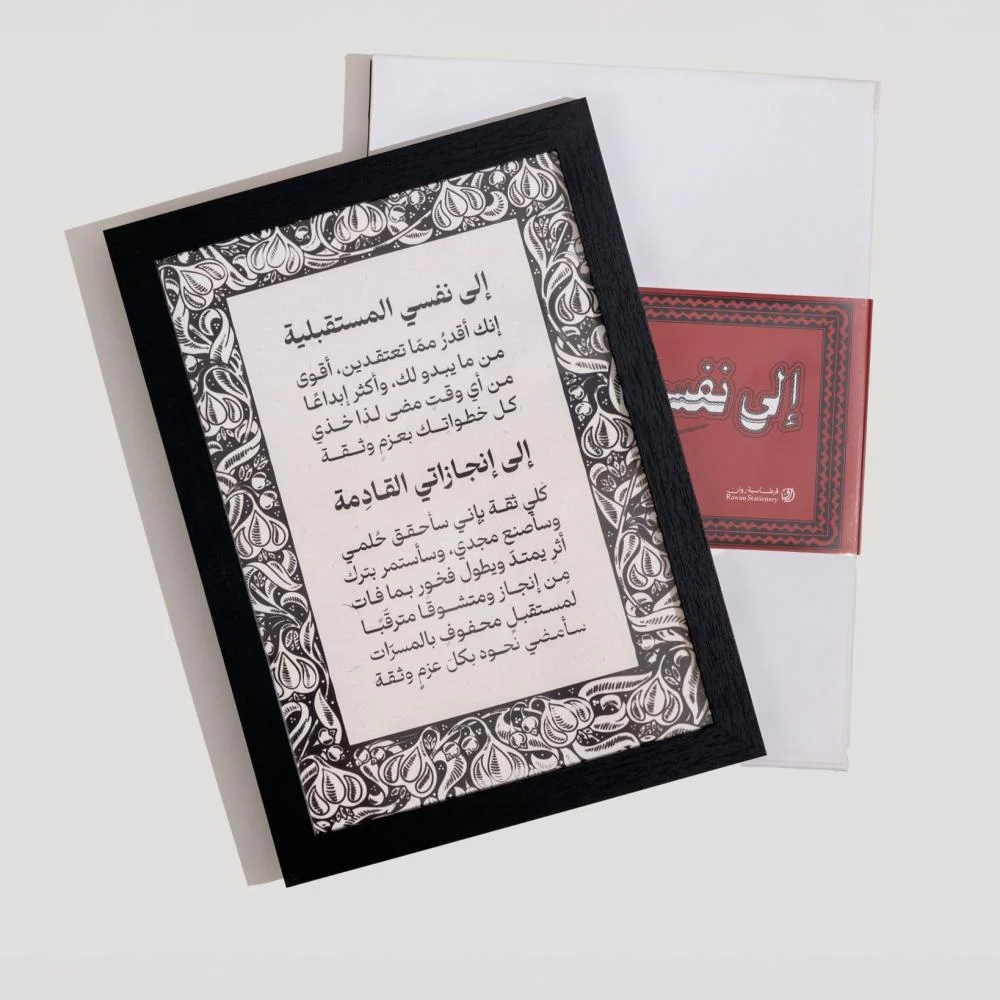 إلى نفسي المستقبلية
إنك أقدرُ ممّا تعتقدين، أقوى
من ما يبدو لك، وأكثر إبداعًا
من أي وقتٍ مضى لذا خذي
كل خطواتك بعزمٍ وثقة
إلى إنجازاتي القادِمة
كلي ثقة بإني سأحقق حُلمي
وسأصنع مجدي، وسأستمر بترك
أثرٍ يمتدّ ويطول فخور بما فات
مِن إنجاز ومتشوقًا مترقّبًا
لمستقبلٍ محفوف بالمسرّات
سأمضي نحوه بكل عزمٍ وثقة
إلى نفس
قرطاسية روان
Rawan Stationery